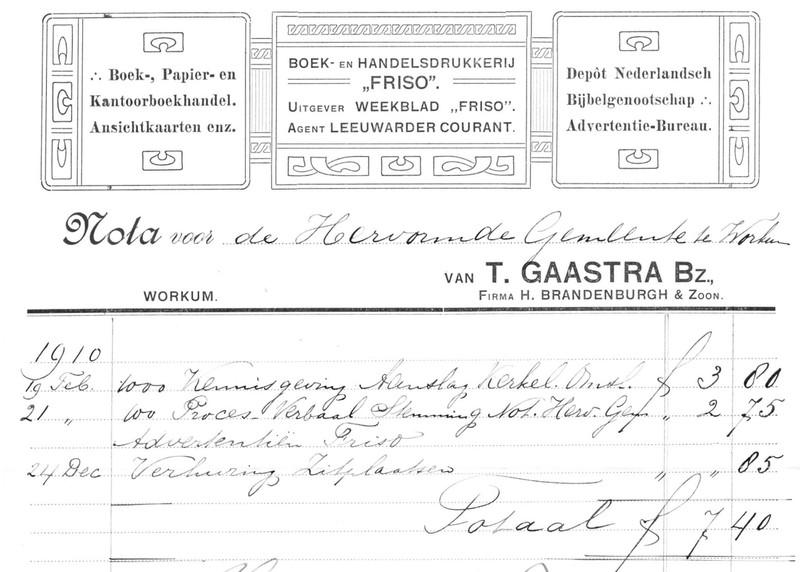 ∴ Boek-, Papier- en
Kantoorboekhandel.
Ansichtkaarten enz.
BOEK- EN HANDELSDRUKKERIJ
„FRISO".
UITGEVER WEEKBLAD „FRISO".
AGENT LEEUWARDER COURANT.
Depôt Nederlandsch
Bijbelgenootschap ∴
Advertentie-Bureau.
Nota voor de Hervormde Gemeente te Workum
VAN T. GAASTRA Bz.,
WORKUM. FIRMA H. BRANDENBURGH & ZOON.
1910
19 Feb. 1000 Kennisgeving Aanslag Kerkel. Omsl. f 3 80
21 „ 100 Proces-Verbaal Stemming Not. Herv. Gem „ 2 75
Advertentiën Friso
24 Dec Verhuring Zitplaatsen „ „ 85
Totaal f 7 40